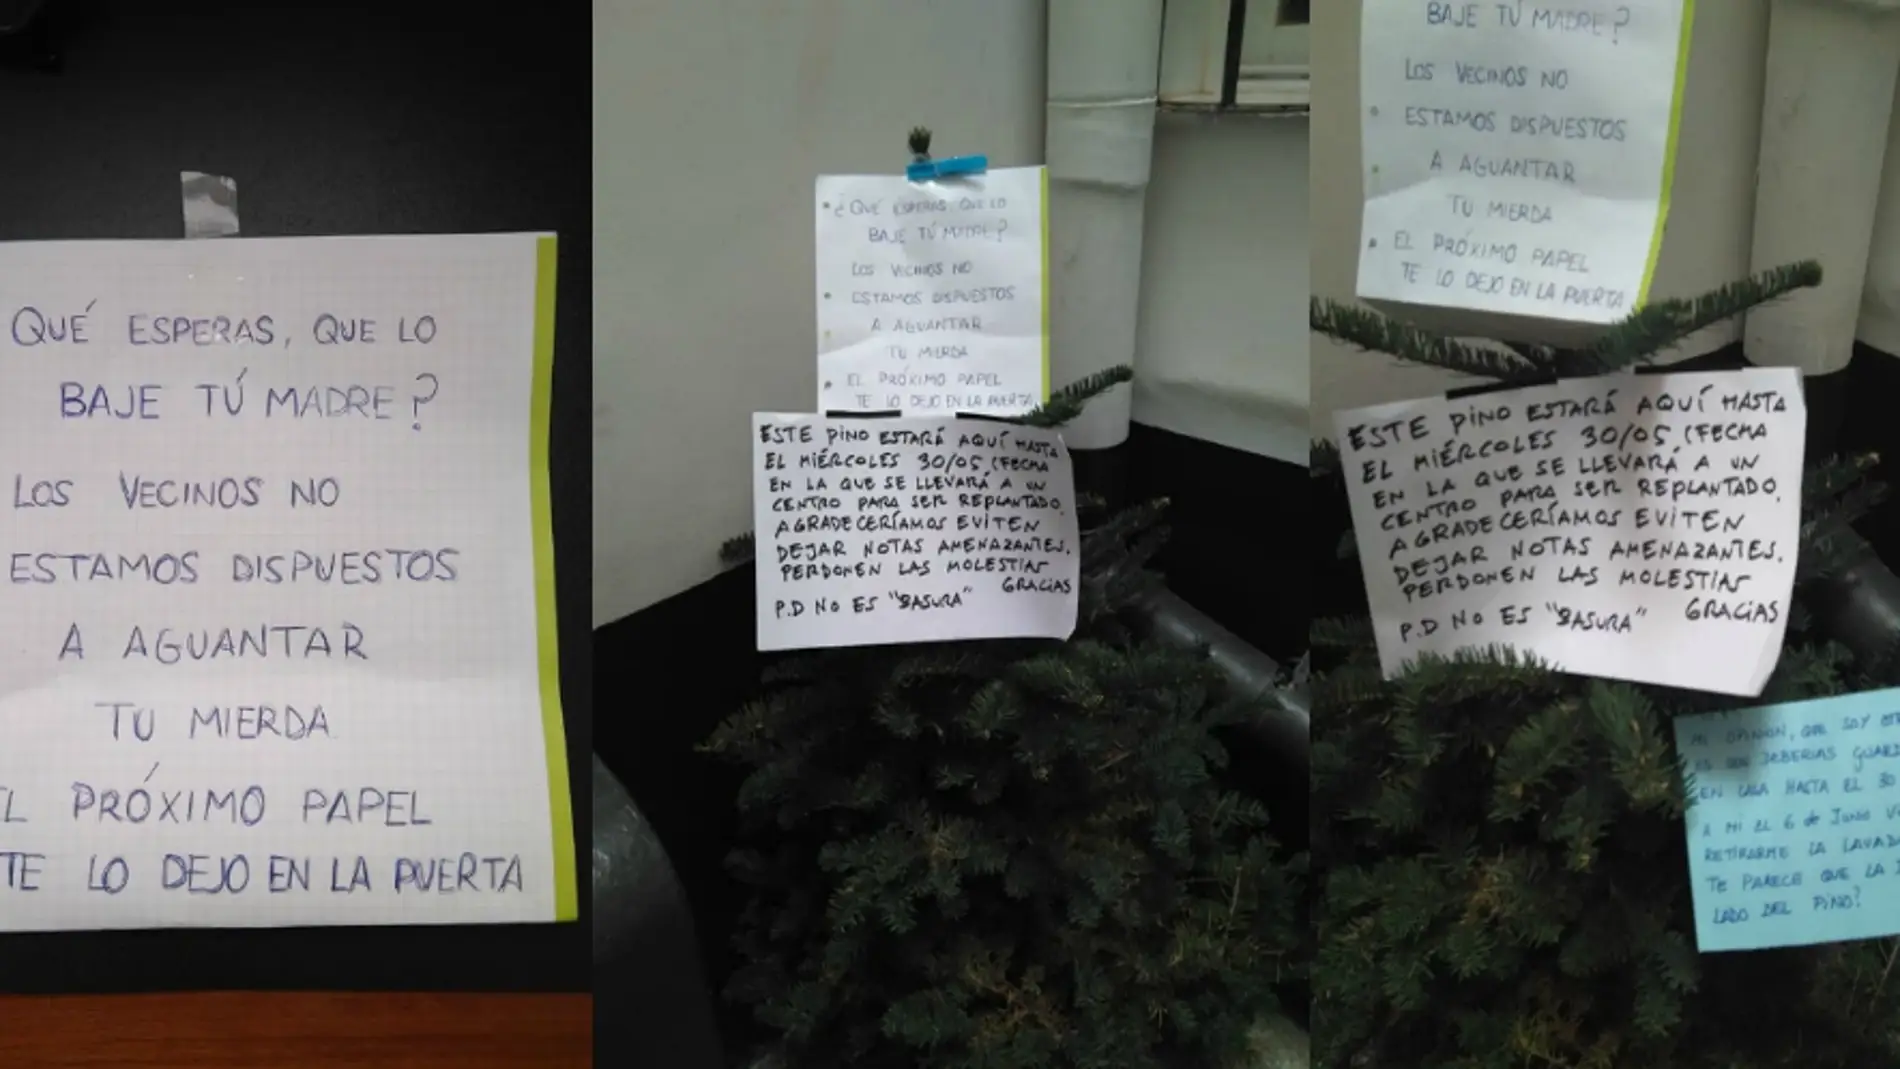 QUÉ ESPERAS, QUE LO
BAJE TÚ MADRE?
LOS VECINOS NO
ESTAMOS DISPUESTOS
A AGUANTAR
TU MIERDA
EL PRÓXIMO PAPEL
TE LO DEJO EN LA PUERTA
¿QUÉ ESPERAS, QUE LO
BAJE TÚ MADRE?
LOS VECINOS NO
ESTAMOS DISPUESTOS
A AGUANTAR
TU MIERDA
EL PRÓXIMO PAPEL
TE LO DEJO EN LA PUERTA
ESTE PINO ESTARÁ AQUÍ HASTA
EL MIÉRCOLES 30/05, (FECHA
EN LA QUE SE LLEVARÁ A UN
CENTRO PARA SER REPLANTADO.
AGRADECERÍAMOS EVITEN
DEJAR NOTAS AMENAZANTES.
PERDONEN LAS MOLESTIAS
GRACIAS
P.D NO ES "BASURA"
BAJE TÚ MADRE?
LOS VECINOS NO
ESTAMOS DISPUESTOS
A AGUANTAR
TU MIERDA
EL PRÓXIMO PAPEL
TE LO DEJO EN LA PUERTA
ESTE PINO ESTARÁ AQUÍ HASTA
EL MIÉRCOLES 30/05, (FECHA
EN LA QUE SE LLEVARÁ A UN
CENTRO PARA SER REPLANTADO.
AGRADECERÍAMOS EVITEN
DEJAR NOTAS AMENAZANTES.
PERDONEN LAS MOLESTIAS
GRACIAS
P.D NO ES "BASURA"
MI OPINION, QUE SOY
ES QUE DEBERIAS
EN CASA HASTA EL 30
A MI EL 6 de JUNIO
RETIRARME LA
TE PARECE QUE LA
LADO DEL PINO?